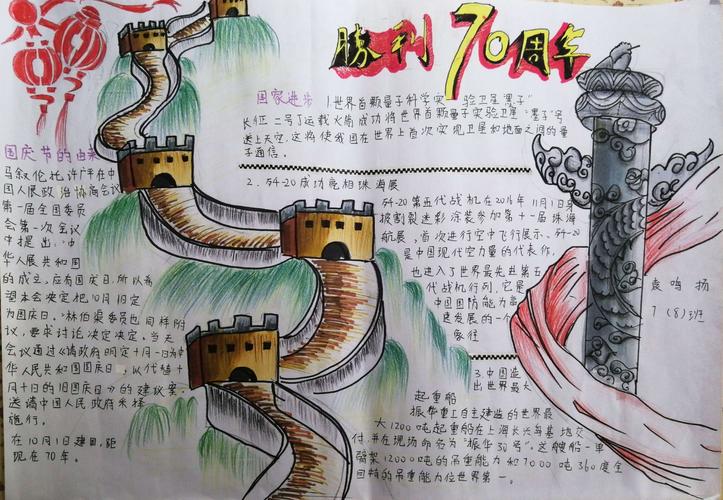 勝利70周年
国庆节的由来
马叙伦托许广平在中
国人民政治协商会议
第一届全国委员
会第一次会议
中提出:"中
华人民共和国
的成立,应有国庆日,所以希
望本会决定把10月1日定
为国庆日。"林伯渠委员也同样附
议,要求讨论决定决定。当天
会议通过《请政府明定十月一日为中
华人民共和国国庆日,以代替十
月十日的旧国庆日》的建议案,
送请中国人民政府采择
施行。
在10月1日建国,距
现在70年。
国家进步 1世界首颗量子科学实 验卫星"墨子"
长征二号丁运载火箭成功将世界首颗量子实验卫星"墨子"号
送上天空,这将使我国在世界上首次实现卫星和地面之间的量
子通信。
2.歼-20成功亮相珠海展
歼-20第五代战机在2016年11月1日身
披割裂迷彩涂装参加第十一届珠海
航展,首次进行空中飞行展示。歼-20
是中国现代空力量的代表作,
也进入了世界最先进第五
代战机行列,它是
中国国防能力
建发展的一个
象征
3.中国造
出世界最大
起重船
振华重工自主建造的世界最
大12000吨起重船在上海长兴岛基地交
付,并在现场命名为"振华30号"。这艘船一单
臂架12000吨的吊重能力和7000吨360度全
回转的吊重能力位世界第一。
袁鸣扬
7(8)班